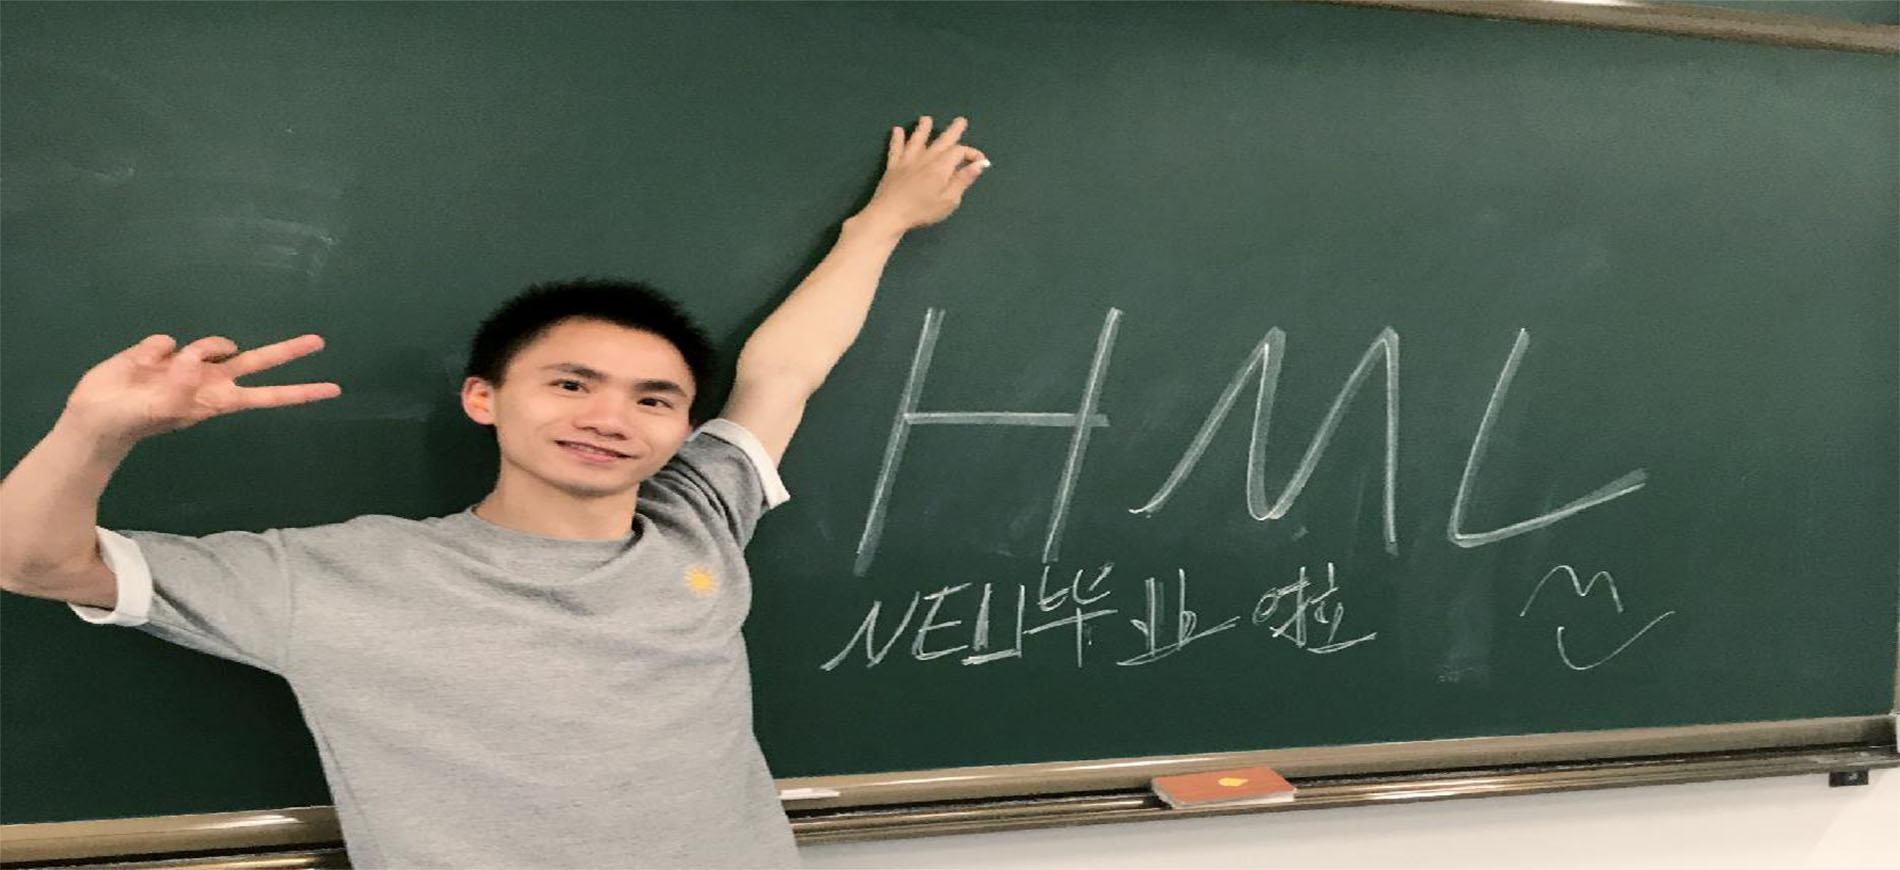 HML
NEU毕业啦